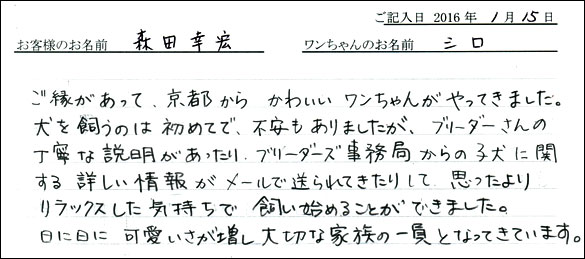 ご記入日 2016 年 1 月 15 日
お客様のお名前 森田幸宏 ワンちゃんのお名前 シロ
ご縁があって、京都から かわいい ワンちゃんが やってきました。
犬を飼うのは 初めてで、不安も ありましたが、ブリーダーさんの
丁寧な説明があったり、ブリーダーズ事務局からの子犬に関
する 詳しい情報 が メールで送られてきたりして、思ったより
リラックスした気持ちで 飼い始めることができました。
日に日に 可愛いさが増し大切な家族の一員となってきています。